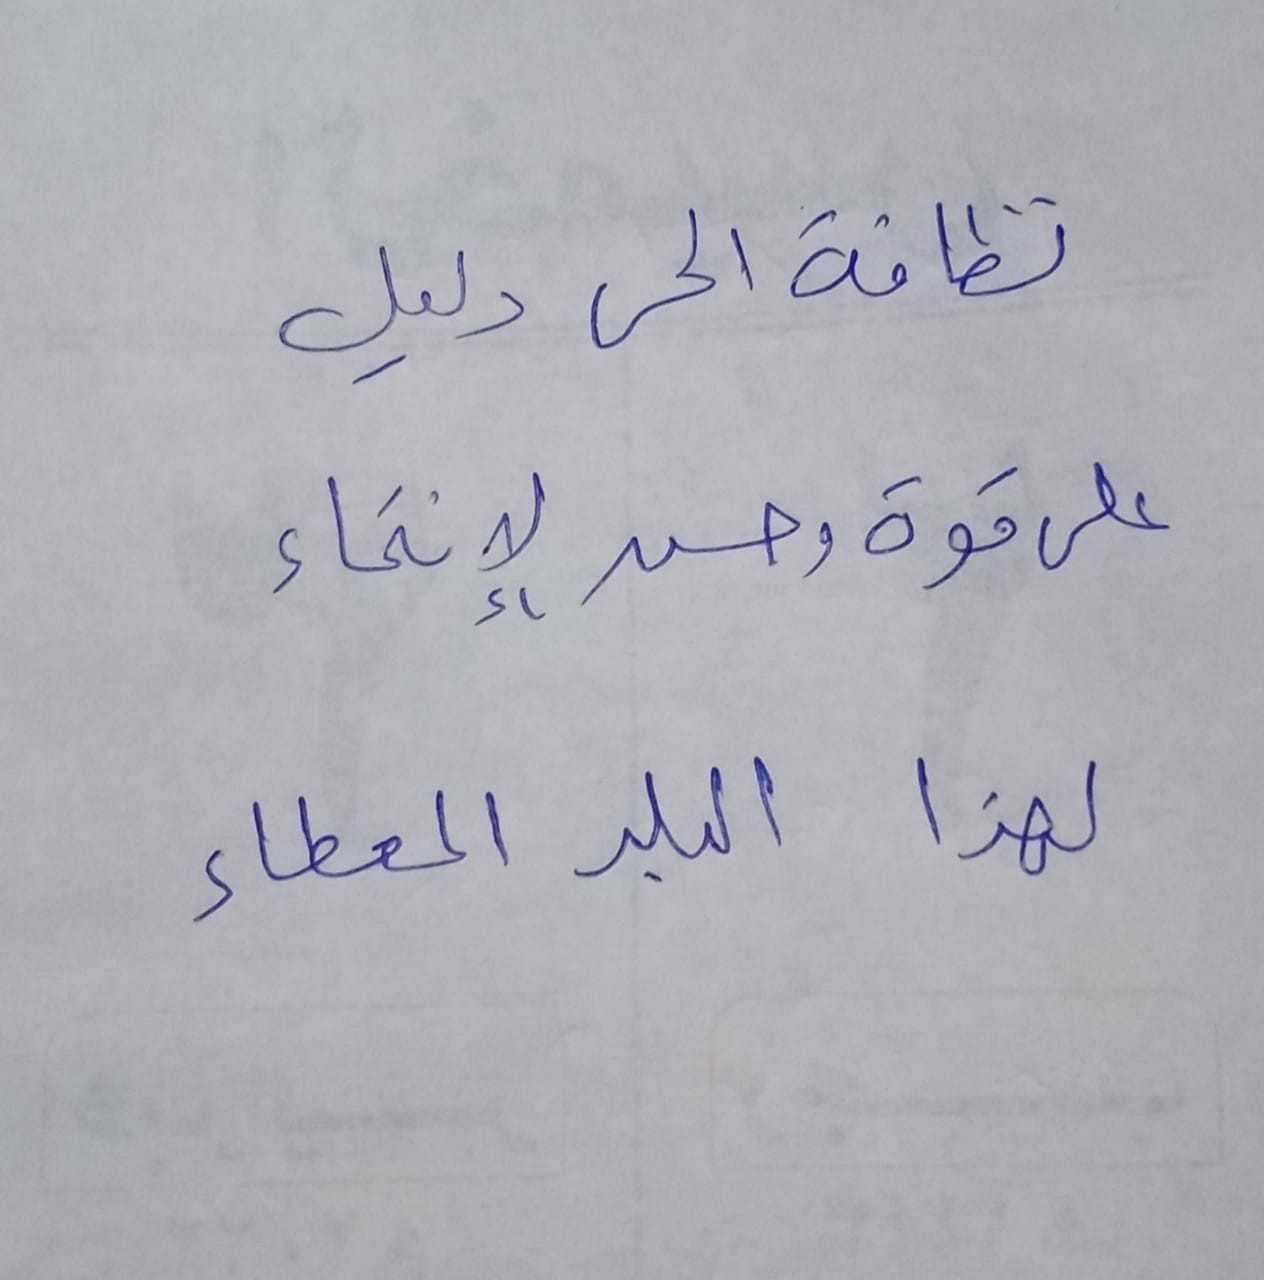 نظافة الحى دليل
على قوة وحسن الإنتماء
لهذا البلد المعطاء